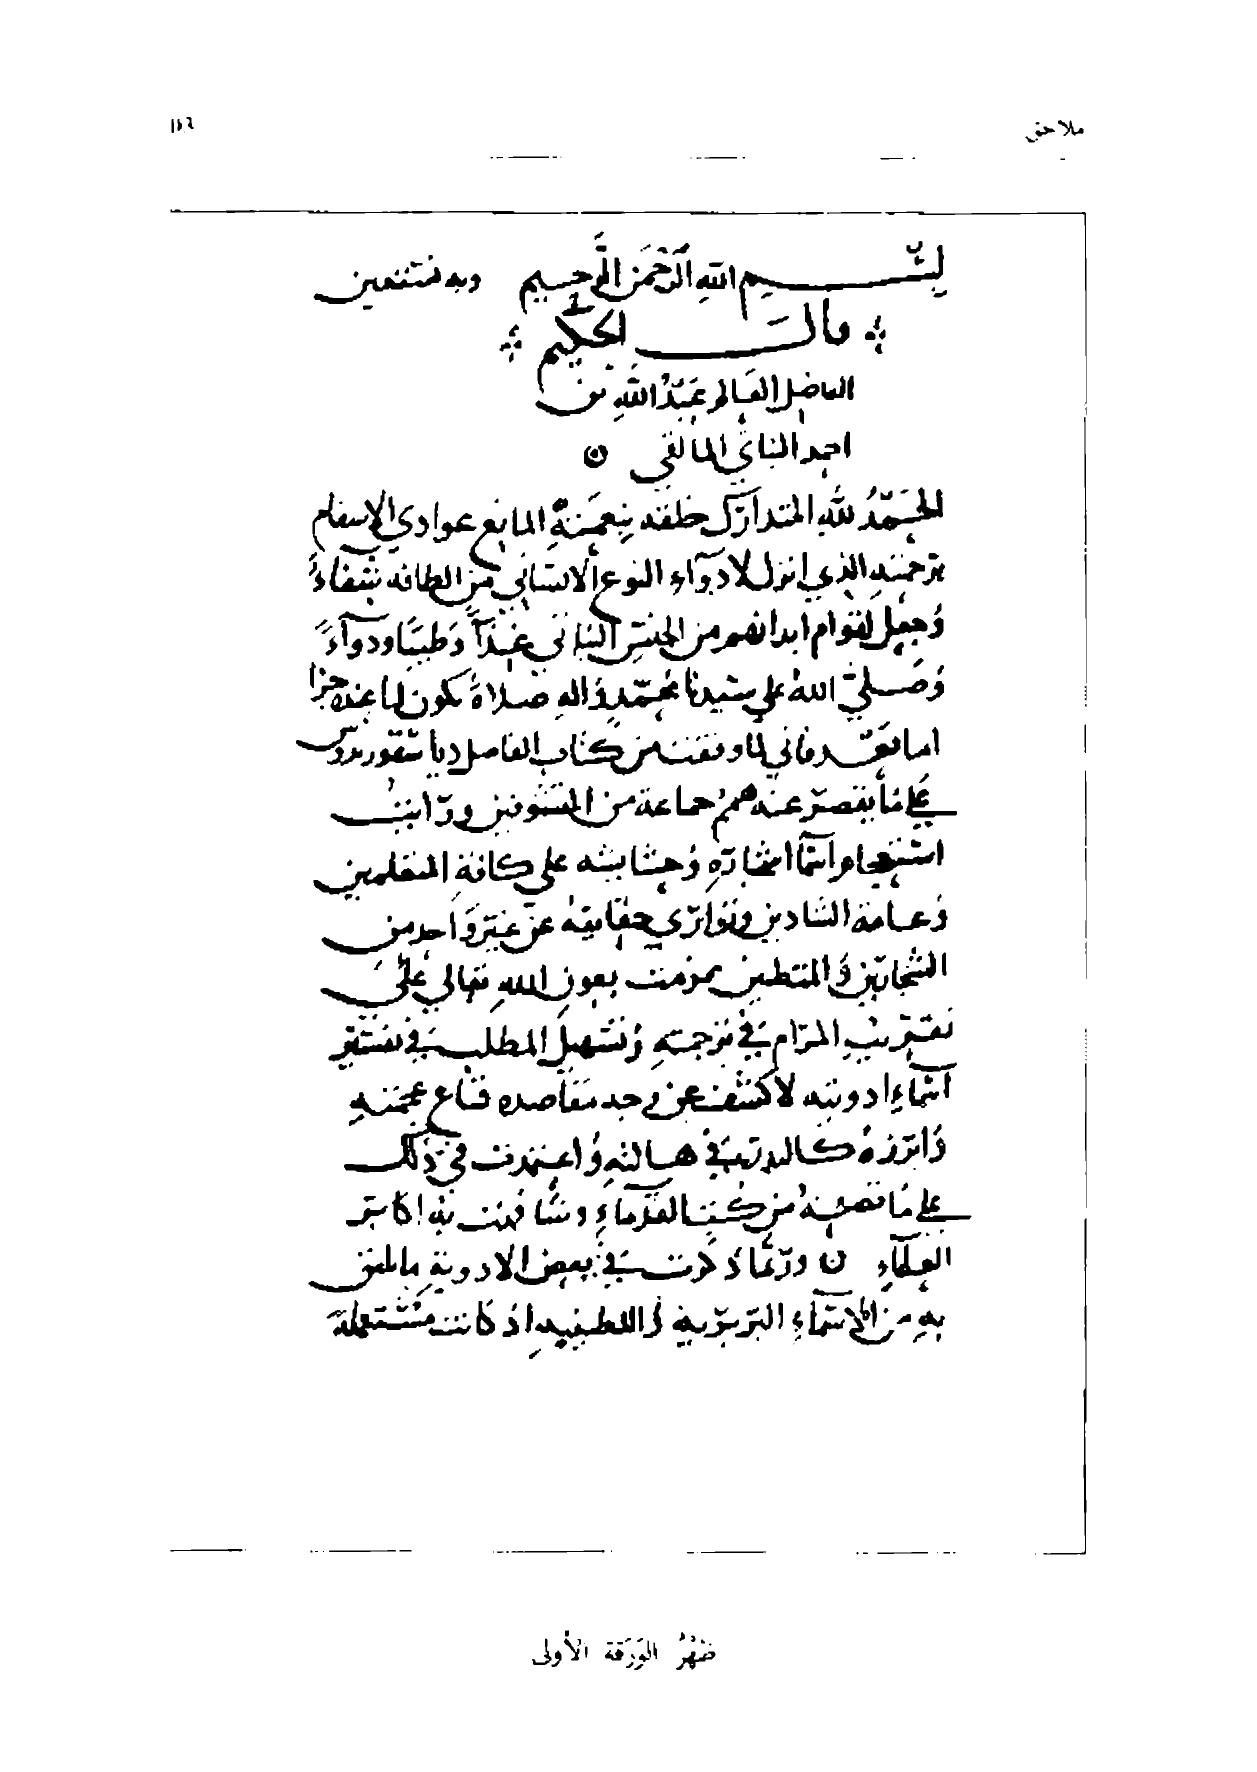 ملاحق
بسم الله الرحمن الرحيم وبه نستعين
قال الحكيم
الفاضل العالم عبد الله بن
احمد النباتي المالقي
الحمد لله المتدارك خلقه بنعمته المانع عوادي الاسقام
برحمته الذي انزل لادوآء النوع الانساني من الطافه شفاء
وجعل لقوام ابدانهم من الجنس النباتي غذآ وطيبا ودوآء
وصلى الله على سيدنا محمد واله صلاة تكون لنا عنده
اما بعد فاني لما وقفت من كتاب الفاضل دياسقوريدوس
على ما يقصر عنه همم جماعة من المتشوفين ورايت
استعجام اسما اشجاره وحشايشه على كافة المتعلمين
وعامة الشادين وتواري حقايقه عن غير واحد من
الشجارين والمتطببين عزمت بعون الله تعالى على
تقريب المرام في ترجمته وتسهيل المطلب في تفسير
اسماء ادويته لاكشف عن وجه مقاصده قناع عجمته
وابرزه كالبدر في هالته واعتمدت في ذلك
على ما تصحته من كتب القدماء وشافهت به اكابر
العلمآء وربما ذكرت في بعض الادوية ما يليق
به من الاسماء البربرية واللطينية اذ كانت مستعملة
ظهر الورقة الأولى